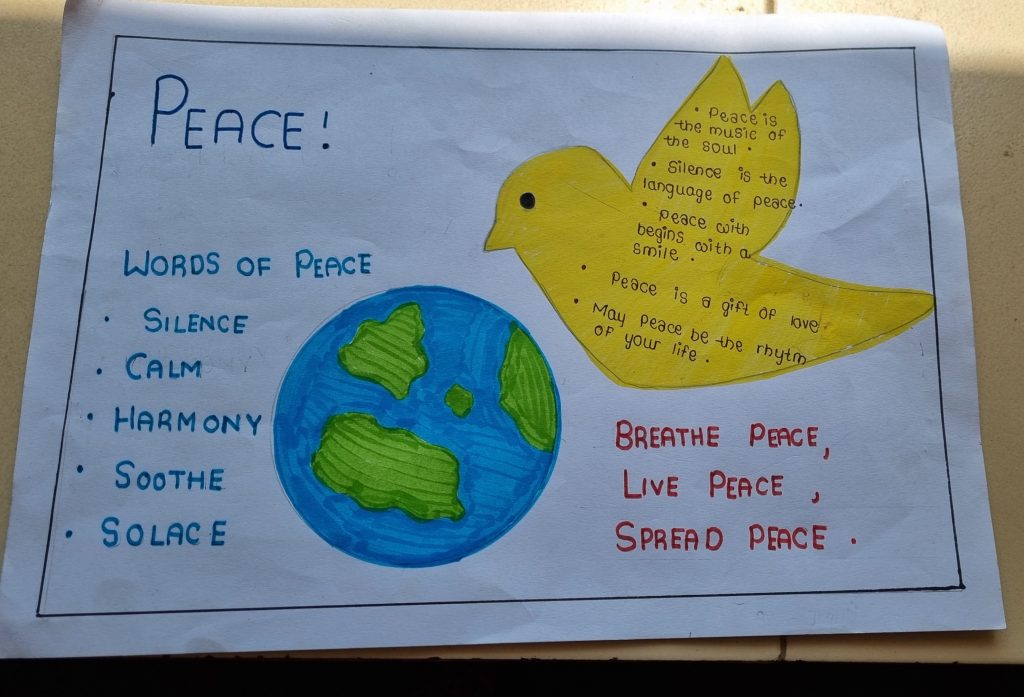 PEACE!
WORDS OF PEACE
• SILENCE
• CALM
• HARMONY
• SOOTHE
• SOLACE
• Peace is
the music of
the soul.
• Silence is the
language of peace.
• Peace with
begins with a
smile.
• Peace is a gift of love
• May Peace be the rhytm
of your life.
BREATHE PEACE,
LIVE PEACE ,
SPREAD PEACE .